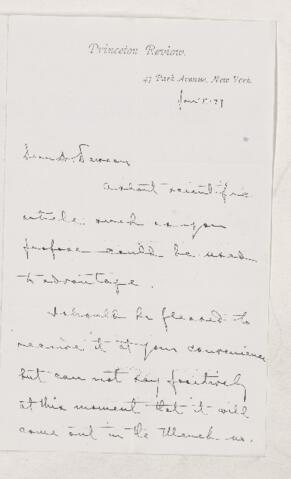 Princeton Review.
47 Park Avenue, New York.
Jan 8. '79
Dear Dr.
A short scientific
article such as you
propose could be used
to advantage.
I should be pleased to
receive it at your convenience
but can not say positively
at this moment that it will
come out in the March no.